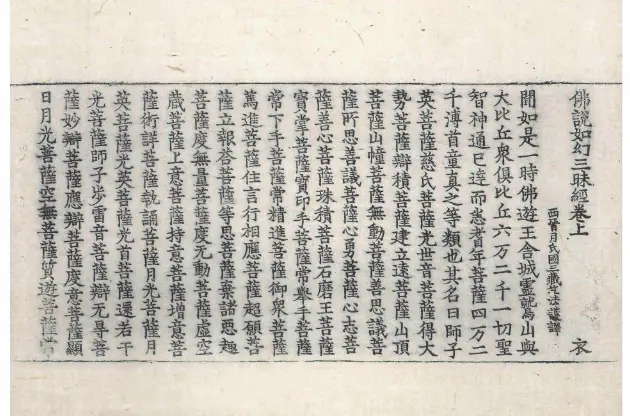 佛說如幻三昧經卷上　衣
西晉月氏國三藏竺法護譯
聞如是一時佛遊王舍城靈鷲山與
大比丘衆俱比丘六万二千一切聖
智神通已達而悉耆年菩薩四万二
千溥首童真之等類也其名曰師子
英菩薩慈氏菩薩光世音菩薩得大
勢菩薩辯積菩薩建立遠菩薩山頂
菩薩山幢菩薩無動菩薩善思議菩
薩所思善議菩薩心勇菩薩心志菩
薩善心菩薩珠積菩薩石磨王菩薩
寶掌菩薩寶印手菩薩常舉手菩薩
常下手菩薩常精進菩薩御衆菩薩
萬進菩薩住言行相應菩薩超願菩
薩立報荅菩薩等思菩薩棄諸惡趣
菩薩度無量菩薩度無動菩薩虛空
藏菩薩上意菩薩持意菩薩增意菩
薩術詳菩薩執誦菩薩月光菩薩月
英菩薩光英菩薩光首菩薩還若干
光菩薩師子步雷音菩薩辯无㝵菩
薩妙辯菩薩應辯菩薩度意菩薩顯
日月光菩薩空無菩薩質遊菩薩常